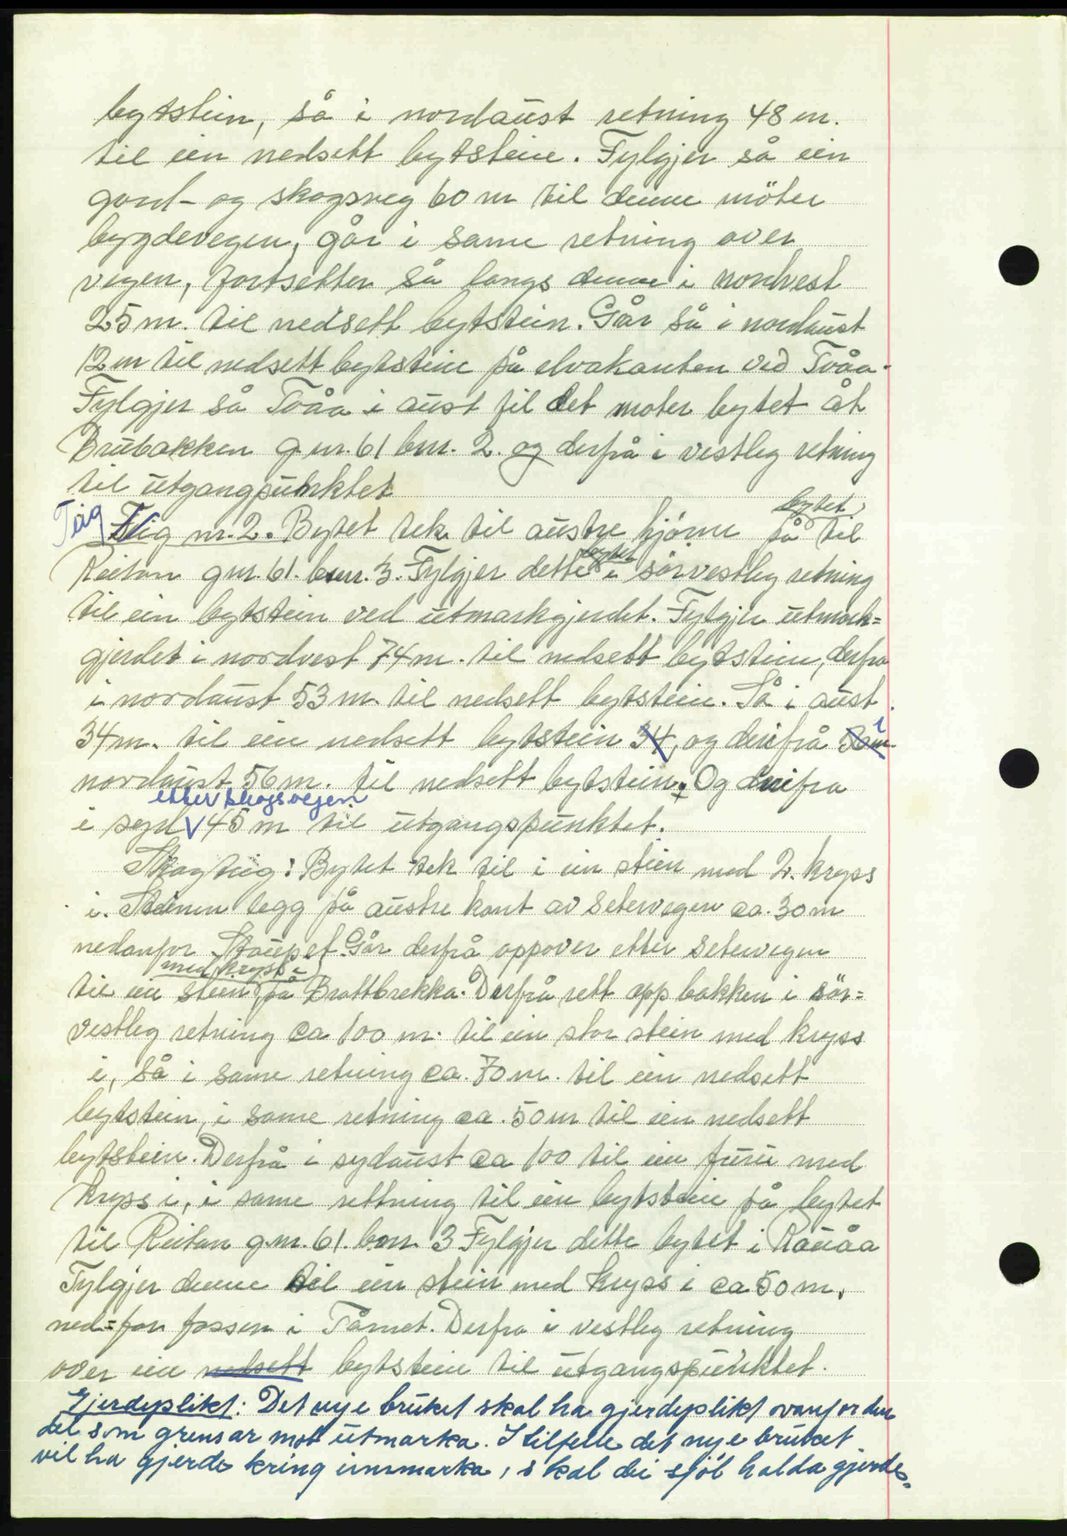 bytstein, så i nordaust retning 48 m.
til ein nedsett bytstein. Fylgjer så ein
gard- og skogsveg 60 m til denne möter
bygdevegen, går i same retning over
vegen, fortsetter så langs denne i nordvest
25 m. til nedsett bytstein. Går så i nordaust
12 m til nedsett bytstein på elvakanten ved Tvåa.
Fylgjer så Tvåa i aust til det moter bytet åt
Brubakken g nr. 61 bnr. 2. og derfrå i vestleg retning
til utgangpunktet
Teig nr. 2. Bytet tek til austre hjörne på bytet til
Reitan gnr. 61. bnr. 3. Fylgjer dette bytet i sörvestleg retning
til ein bytstein ved utmarkgjerdet. Fylgjer utmark=
gjerdet i nordvest 74 m. til nedsett bytstein, derfra
i nordaust 53 m til nedsett bytstein. Så i aust
34 m. til ein nedsett bytstein 34, og derifrå i
nordaust 56 m. til nedsett bytstein. Og derifra
i syd etter skogsvegen 45 m til utgangspunktet.
Skogteig: Bytet tek til i ein stein med 2. kryss
i. Steinen legg på austre kant av Setervegen ca. 30 m
nedanfor Staupet. Går derfrå oppover etter Setervegen
til ein stein med kryss i på Brattbrekka. Derfrå rett opp bakken i sör=
vestleg retning ca 100 m. til ein stor stein med kryss
i, så i same retning ca. 70 m. til ein nedsett
bytstein, i same retning ca. 50 m til ein nedsett
bytstein. Derfrå i sydaust ca 100 til ein furu med
kryss i, i same rettning til ein bytstein på bytet
til Reitan g.nr. 61. bnr. 3 Fylgjer dette bytet i Rauåa
Fylgjer denne til ein stein med kryss i ca 50 m.
ned=for fossen i Tårnet. Derfra i vestleg retning
over ein nedsett bytstein til utgangspunktet.
Gjerdeplikt: Det nye bruket skal ha gjerdeplikt ovanfor den
del som grensar mot utmarka. I tilfelle det nye bruket
vil ha gjerde kring innmarka, skal dei sjöl halda gjerde=